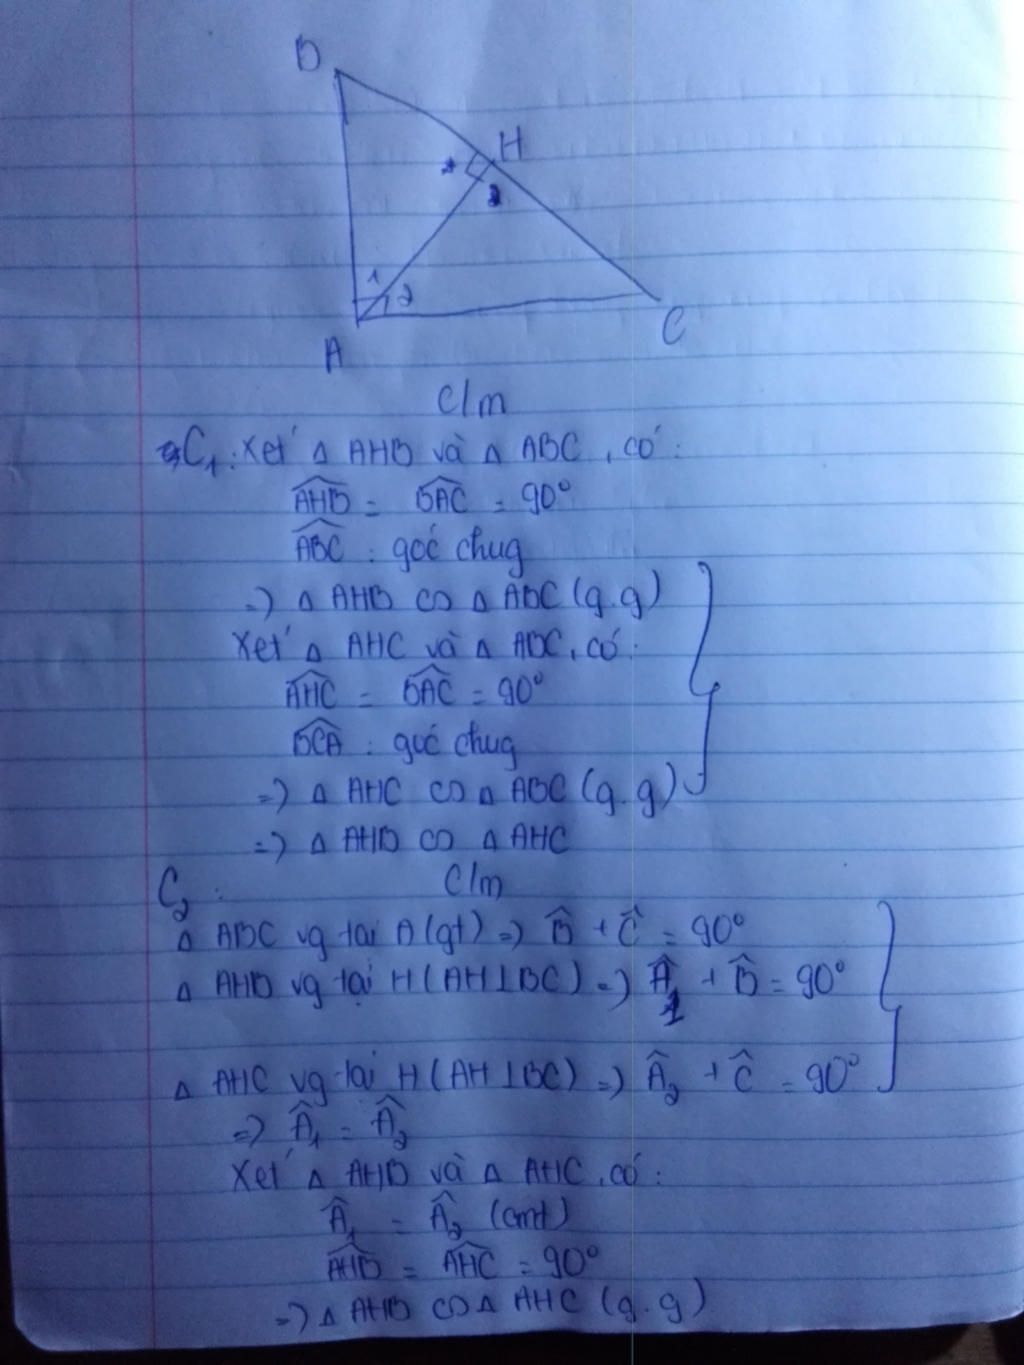 B
H
1
2
A
C
C/m
C₁: Xét Δ AHB và Δ ABC, có:
AHB = BAC = 90°
ABC : góc chug
=) Δ AHB ∽ Δ ABC (g.g)
Xét Δ AHC và Δ ABC, có:
AHC = BAC = 90°
BCA : góc chug
=) Δ AHC ∽ Δ ABC (g.g)
=) Δ AHB ∽ Δ AHC
C₂ : C/m
Δ ABC vg tại A (gt) =) B̂ + Ĉ = 90°
Δ AHB vg tại H (AH ⊥ BC) =) Â₁ + B̂ = 90°
Δ AHC vg tại H (AH ⊥ BC) =) Â₂ + Ĉ = 90°
=) Â₁ = Â₂
Xét Δ AHB và Δ AHC, có:
Â₁ = Â₂ (cmt)
AHB = AHC = 90°
=) Δ AHB ∽ Δ AHC (g.g)